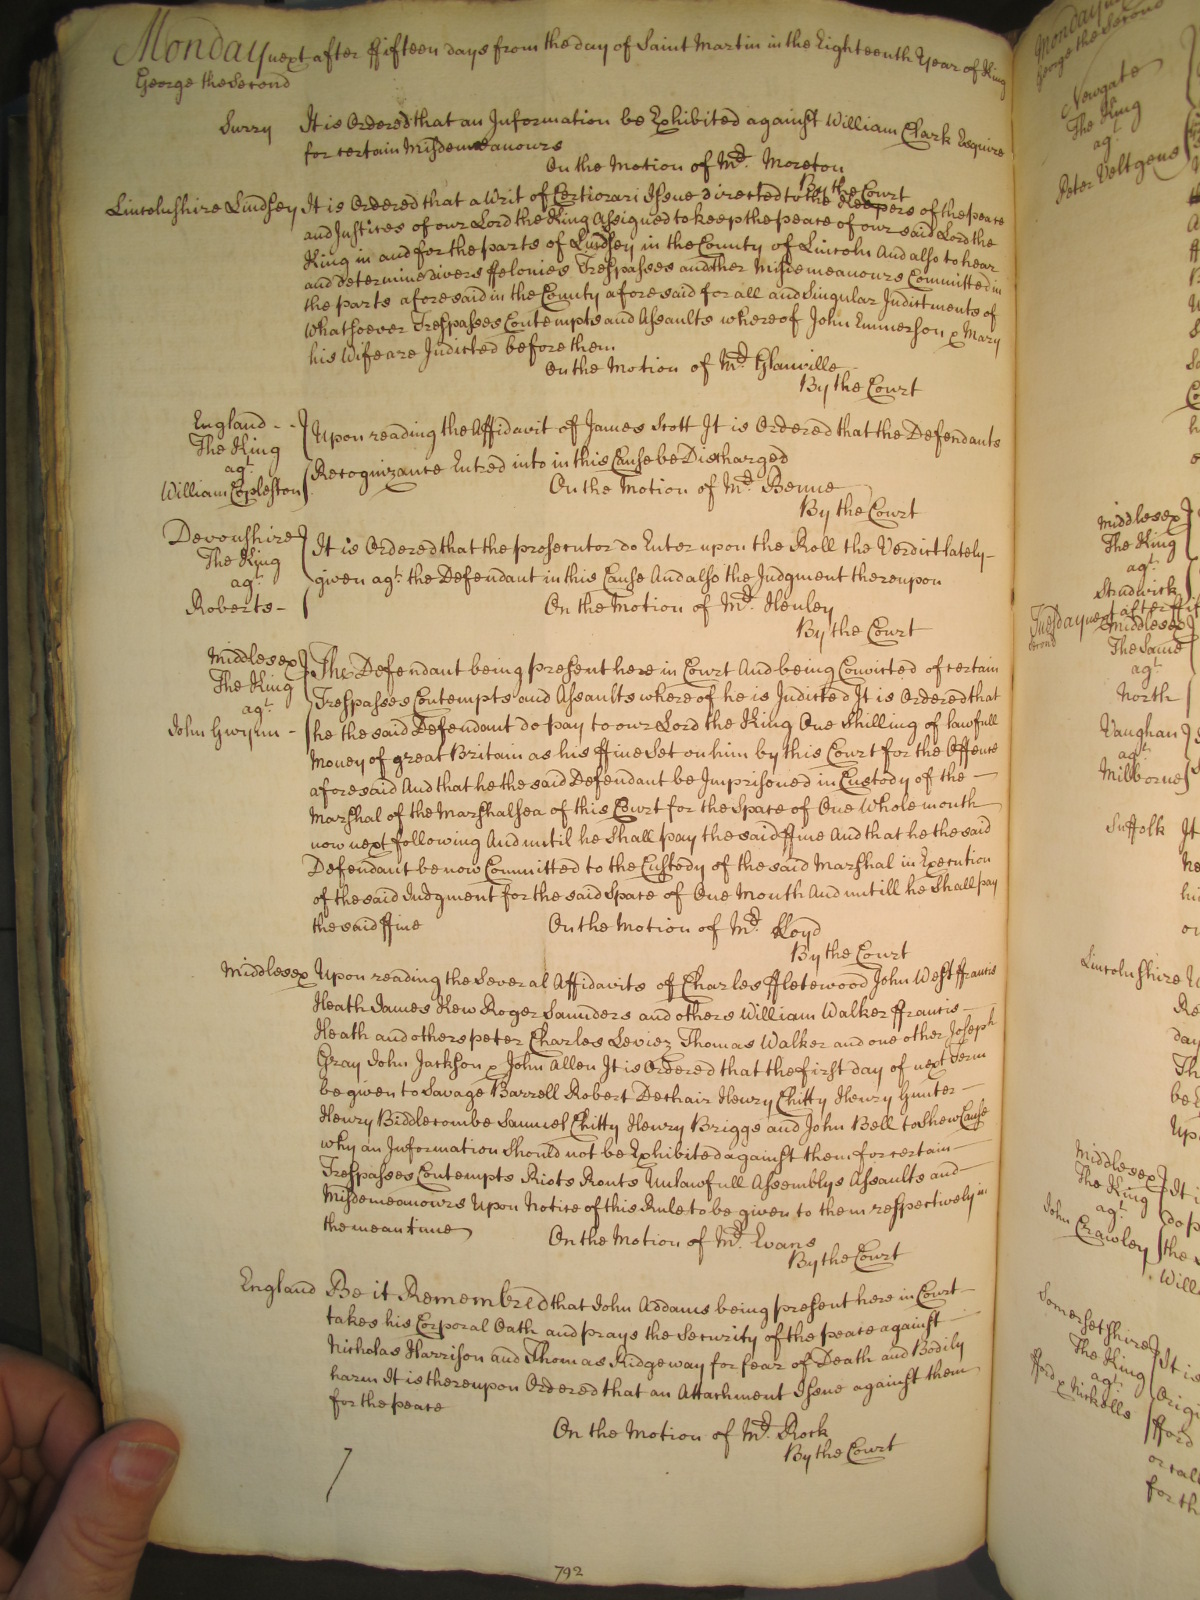 Monday next after ffifteen days from the day of Saint Martin in the Eighteenth Year of King
George the Second
Surry It is Ordered that an Information be Exhibited against William Clark Esquire
for certain Misdemeanours
On the Motion of Mr. Moreton
By the Court
Lincolnshire Lindsey It is Ordered that a Writ of Certiorari Issue directed to the Keepers of the peace
and Justices of our Lord the King Assigned to keep the peace of our said Lord the
King in and for the parts of Lindsey in the County of Lincoln And also to hear
and determine divers ffelonies Trespasses and other Misdemeanours Committed in
the parts aforesaid in the County aforesaid for all and Singular Indictments of
Whatsoever Trespasses Contempts and Assaults whereof John Emmerson & Mary
his Wife are Indicted before them
On the Motion of Mr. Glanville
By the Court
England
The King
agt.
William Copleston
Upon reading the Affidavit of James Scott It is Ordered that the Defendants
Recognizance Entred into in this Cause be Discharged
On the Motion of Mr. Benne
By the Court
Devonshire
The King
agt.
Roberts
It is Ordered that the prosecutor do Enter upon the Roll the Verdict lately
given agt. the Defendant in this Cause And also the Judgment thereupon
On the Motion of Mr. Henley
By the Court
Middlesex
The King
agt.
John Gwynn
The Defendant being present here in Court And being Convicted of certain
Trespasses Contempts and Assaults whereof he is Indicted It is Ordered that
he the said Defendant do pay to our Lord the King One Shilling of lawfull
Money of great Britain as his ffine Set on him by this Court for the Offence
aforesaid And that he the said Defendant be Imprisoned in Custody of the
Marshal of the Marshalsea of this Court for the Space of One Whole month
now next following And until he Shall pay the said ffine And that he the said
Defendant be now Committed to the Custody of the said Marshal in Execution
of the said Judgment for the said Space of One Month And untill he Shall pay
the said ffine On the Motion of Mr. Lloyd
By the Court
Middlesex Upon reading the Several Affidavits of Charles ffletewood John West ffrancis
Heath James Kew Roger Saunders and others William Walker ffrancis
Heath and others peter Charles Leviez Thomas Walker and one other Joseph
Gray John Jackson & John Allen It is Ordered that the first day of next Term
be given to Savage Barrell Robert Dechair Henry Chitty Henry Hunter
Henry Biddlecombe Samuel Chitty Henry Briggs and John Bell to Shew Cause
why an Information Should not be Exhibited against them for certain
Trespasses Contempts Riots Routs Unlawfull Assemblys Assaults and
Misdemeanours Upon Notice of this Rule to be given to them respectively in
the mean time
On the Motion of Mr. Evans
By the Court
England Be it Remembred that John Addams being present here in Court
takes his Corporal Oath and prays the Security of the peace against
Nicholas Harrison and Thomas Ridgeway for fear of Death and Bodily
harm It is thereupon Ordered that an Attachment Issue against them
for the peace
On the Motion of Mr. Rock
By the Court
792
Monday
George the Second
Newgate
The King
agt.
Peter Veltgens
Middlesex
The King
agt.
Strudwick
Tuesday next after
Middlesex
The Same
agt.
North
Vaughan
agt.
Milborne
Suffolk It
Lincolnshire
Middlesex
The King
agt.
John Crawley
It i
do p
the
Willi
Somersetshire
The King
agt.
fford & Nickolls
It is
Origi
fford
or call
for th